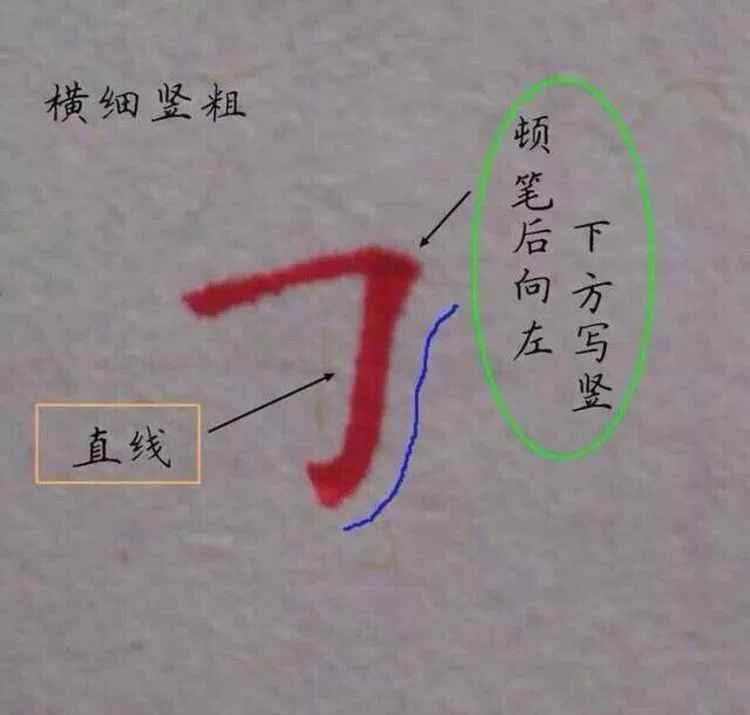 横细竖粗
顿笔后向左
下方写竖
直线